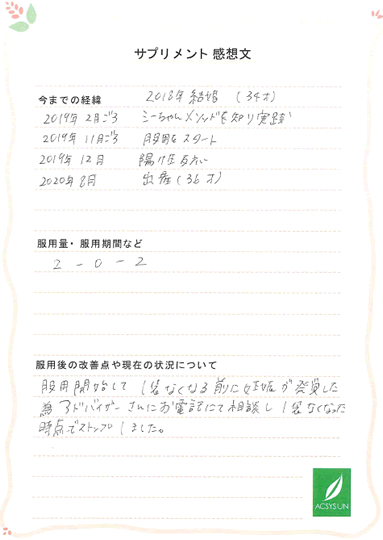 サプリメント 感想文
今までの経緯 2018年 結婚 (34才)
2019年 2月ごろ シーちゃんメソッドを知り実践
2019年 11月ごろ 服用をスタート
2019年 12月 陽
2020年 8月 出産(36才)
服用量・服用期間など
2 - 0 - 2
服用後の改善点や現在の状況について
服用開始して 1袋なくなる前に妊娠が発覚した
為 アドバイザーさんにお電話にて相談し 1袋なくなった
時点でストップしました。
ACSYSUN